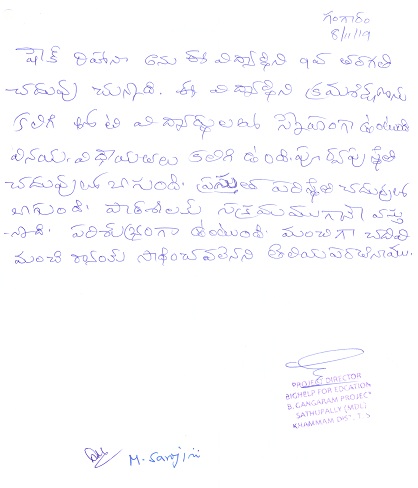 గంగారం
8/11/19
షేక్ రిహానా అను ఈ విద్యార్థిని 9వ తరగతి
చదువు చున్నది. ఈ విద్యార్థిని క్రమశిక్షణను
కలిగి తోటి విద్యార్థులతో స్నేహంగా ఉంటుంది
వినయ, విధాయతలు కలిగి ఉంది. పూర్వపు స్థితి
చదువులో బాగుంది. ప్రస్తుత పరిస్థితి చదువులో
బాగుంది. పాఠశాలకు సక్రమముగానే వస్తు
-న్నది. పరిశుభ్రంగా ఉంటుంది. మంచిగా చదివి
మంచి ర్యాంక్ సాధించవలెనని తెలియపరచినాము.
PROJECT DIRECTOR
BIGHELP FOR EDCATION
B. GANGARAM PROJECT
SATHUPALLY (MDL)
KHAMMAM DIST, T. S
M. Sarojini